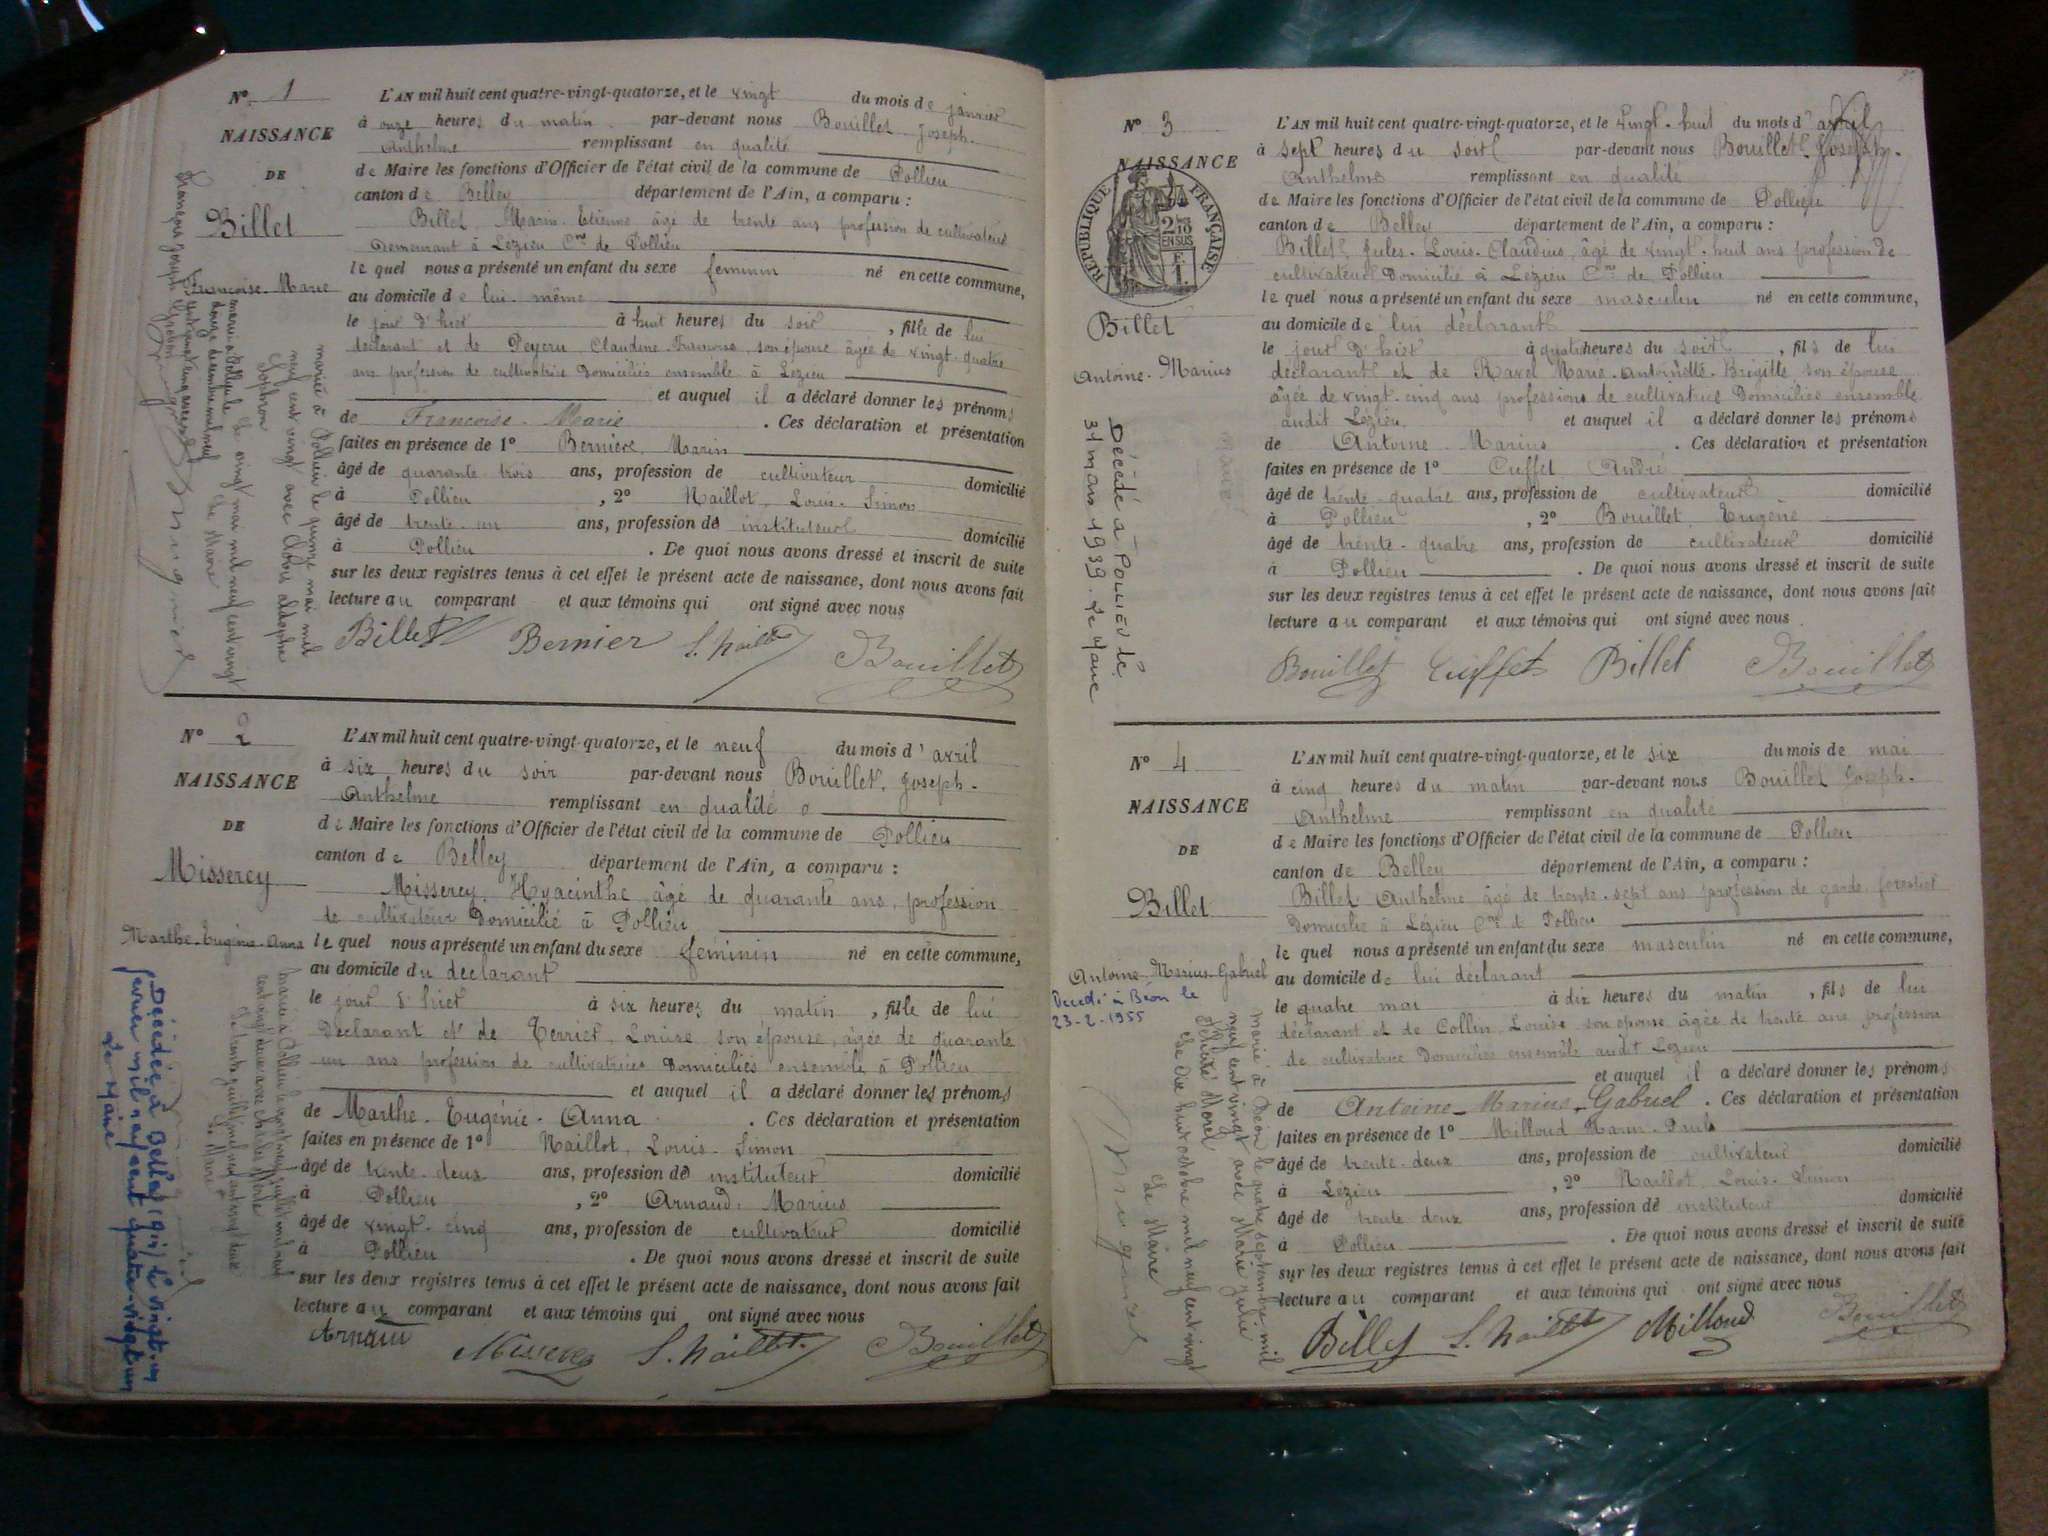 N° 1
NAISSANCE
DE
Billet
Françoise-Marie
L'AN mil huit cent quatre-vingt-quatorze, et le vingt du mois de janvier
à onze heures du matin par-devant nous Bouillet Joseph-
Anthelme remplissant en qualité
de Maire les fonctions d'Officier de l'état civil de la commune de Pollieu
canton de Belley département de l'Ain, a comparu :
Billet, Marin-Etienne âgé de trente ans profession de cultivateur
demeurant à Lézieu Cne de Pollieu
le quel nous a présenté un enfant du sexe feminin né en cette commune,
au domicile de lui-même
le jour d'hier à huit heures du soir, fille de lui
déclarant et de Peycru Claudine-Françoise, son épouse âgée de vingt-quatre
ans profession de cultivatrice domiciliés ensemble à Lézieu
et auquel il a déclaré donner les prénoms
de Françoise-Marie. Ces déclaration et présentation
faites en présence de 1° Bernière, Marin
âgé de quarante trois ans, profession de cultivateur domicilié
à Pollieu, 2° Naillot, Louis-Simon
âgé de trente-un ans, profession de instituteur domicilié
à Pollieu. De quoi nous avons dressé et inscrit de suite
sur les deux registres tenus à cet effet le présent acte de naissance, dont nous avons fait
lecture au comparant et aux témoins qui ont signé avec nous
Billet Bernier L. Naillot Bouillet
mariée à Pollieu le quinze mai mil
neuf cent vingt avec
le vingt mai mil neuf cent vingt
Le Maire
N° 2
NAISSANCE
DE
Misserey
Marthe-Eugénie-Anna
L'AN mil huit cent quatre-vingt-quatorze, et le neuf du mois d'avril
à six heures du soir par-devant nous Bouillet, Joseph-
Anthelme remplissant en qualité
de Maire les fonctions d'Officier de l'état civil de la commune de Pollieu
canton de Belley département de l'Ain, a comparu :
Misserey, Hyacinthe, âgé de quarante ans, profession
de cultivateur domicilié à Pollieu
le quel nous a présenté un enfant du sexe féminin né en cette commune,
au domicile du déclarant
le jour d'hier à six heures du matin, fille de lui
déclarant et de Terrier, Louise, son épouse, âgée de quarante
un ans profession de cultivatrices domiciliés ensemble à Pollieu
et auquel il a déclaré donner les prénoms
de Marthe-Eugénie-Anna. Ces déclaration et présentation
faites en présence de 1° Naillot, Louis-Simon
âgé de trente-deux ans, profession de instituteur domicilié
à Pollieu, 2° Arnaud, Marius
âgé de vingt-cinq ans, profession de cultivateur domicilié
à Pollieu. De quoi nous avons dressé et inscrit de suite
sur les deux registres tenus à cet effet le présent acte de naissance, dont nous avons fait
lecture au comparant et aux témoins qui ont signé avec nous
Arnaud Misserey L. Naillot Bouillet
Décédée à Belley (Ain) le vingt-un
février mil neuf cent quatre-vingt un
Le Maire
N° 3
NAISSANCE
RÉPUBLIQUE FRANÇAISE
2/10 EN SUS
Billet
Antoine-Marius
L'AN mil huit cent quatre-vingt-quatorze, et le vingt-huit du mois d'avril
à sept heures du soir par-devant nous Bouillet Joseph-
Anthelme remplissant en qualité
de Maire les fonctions d'Officier de l'état civil de la commune de Pollieu
canton de Belley département de l'Ain, a comparu :
Billet, Jules-Louis-Claudius, âgé de vingt-huit ans profession de
cultivateur domicilié à Lézieu Cne de Pollieu
le quel nous a présenté un enfant du sexe masculin né en cette commune,
au domicile de lui déclarant
le jour d'hier à quatre heures du soir, fils de lui
déclarant et de Ravel Marie-Antoinette-Brigitte son épouse
âgée de vingt-cinq ans profession de cultivatrice domiciliés ensemble
audit Lézieu et auquel il a déclaré donner les prénoms
de Antoine-Marius. Ces déclaration et présentation
faites en présence de 1° Cuffet André
âgé de trente-quatre ans, profession de cultivateur domicilié
à Pollieu, 2° Bouillet, Eugène
âgé de trente-quatre ans, profession de cultivateur domicilié
à Pollieu. De quoi nous avons dressé et inscrit de suite
sur les deux registres tenus à cet effet le présent acte de naissance, dont nous avons fait
lecture au comparant et aux témoins qui ont signé avec nous
Bouillet Cuffet Billet Bouillet
Décédé à POLLIEU le
31 mars 1939. Le Maire
N° 4
NAISSANCE
DE
Billet
Antoine-Marius-Gabriel
Décédé à Béon le
23-2-1955
L'AN mil huit cent quatre-vingt-quatorze, et le six du mois de mai
à cinq heures du matin par-devant nous Bouillet Joseph-
Anthelme remplissant en qualité
de Maire les fonctions d'Officier de l'état civil de la commune de Pollieu
canton de Belley département de l'Ain, a comparu :
Billet Anthelme âgé de trente-sept ans profession de garde forestier
domicilié à Lézieu Cne de Pollieu
le quel nous a présenté un enfant du sexe masculin né en cette commune,
au domicile de lui déclarant
le quatre mai à dix heures du matin, fils de lui
déclarant et de Collin, Louise son épouse âgée de trente ans profession
de cultivatrice domiciliés ensemble audit Lézieu
et auquel il a déclaré donner les prénoms
de Antoine-Marius-Gabriel. Ces déclaration et présentation
faites en présence de 1° Milloud Marin-Paul
âgé de trente-deux ans, profession de cultivateur domicilié
à Lézieu, 2° Naillot, Louis-Simon
âgé de trente deux ans, profession de instituteur domicilié
à Pollieu. De quoi nous avons dressé et inscrit de suite
sur les deux registres tenus à cet effet le présent acte de naissance, dont nous avons fait
lecture au comparant et aux témoins qui ont signé avec nous
Billet L. Naillot Milloud Bouillet
marié à Béon le quatre septembre mil
neuf cent vingt avec Marie Julie
Morel
Le dix huit octobre mil neuf cent vingt
Le Maire